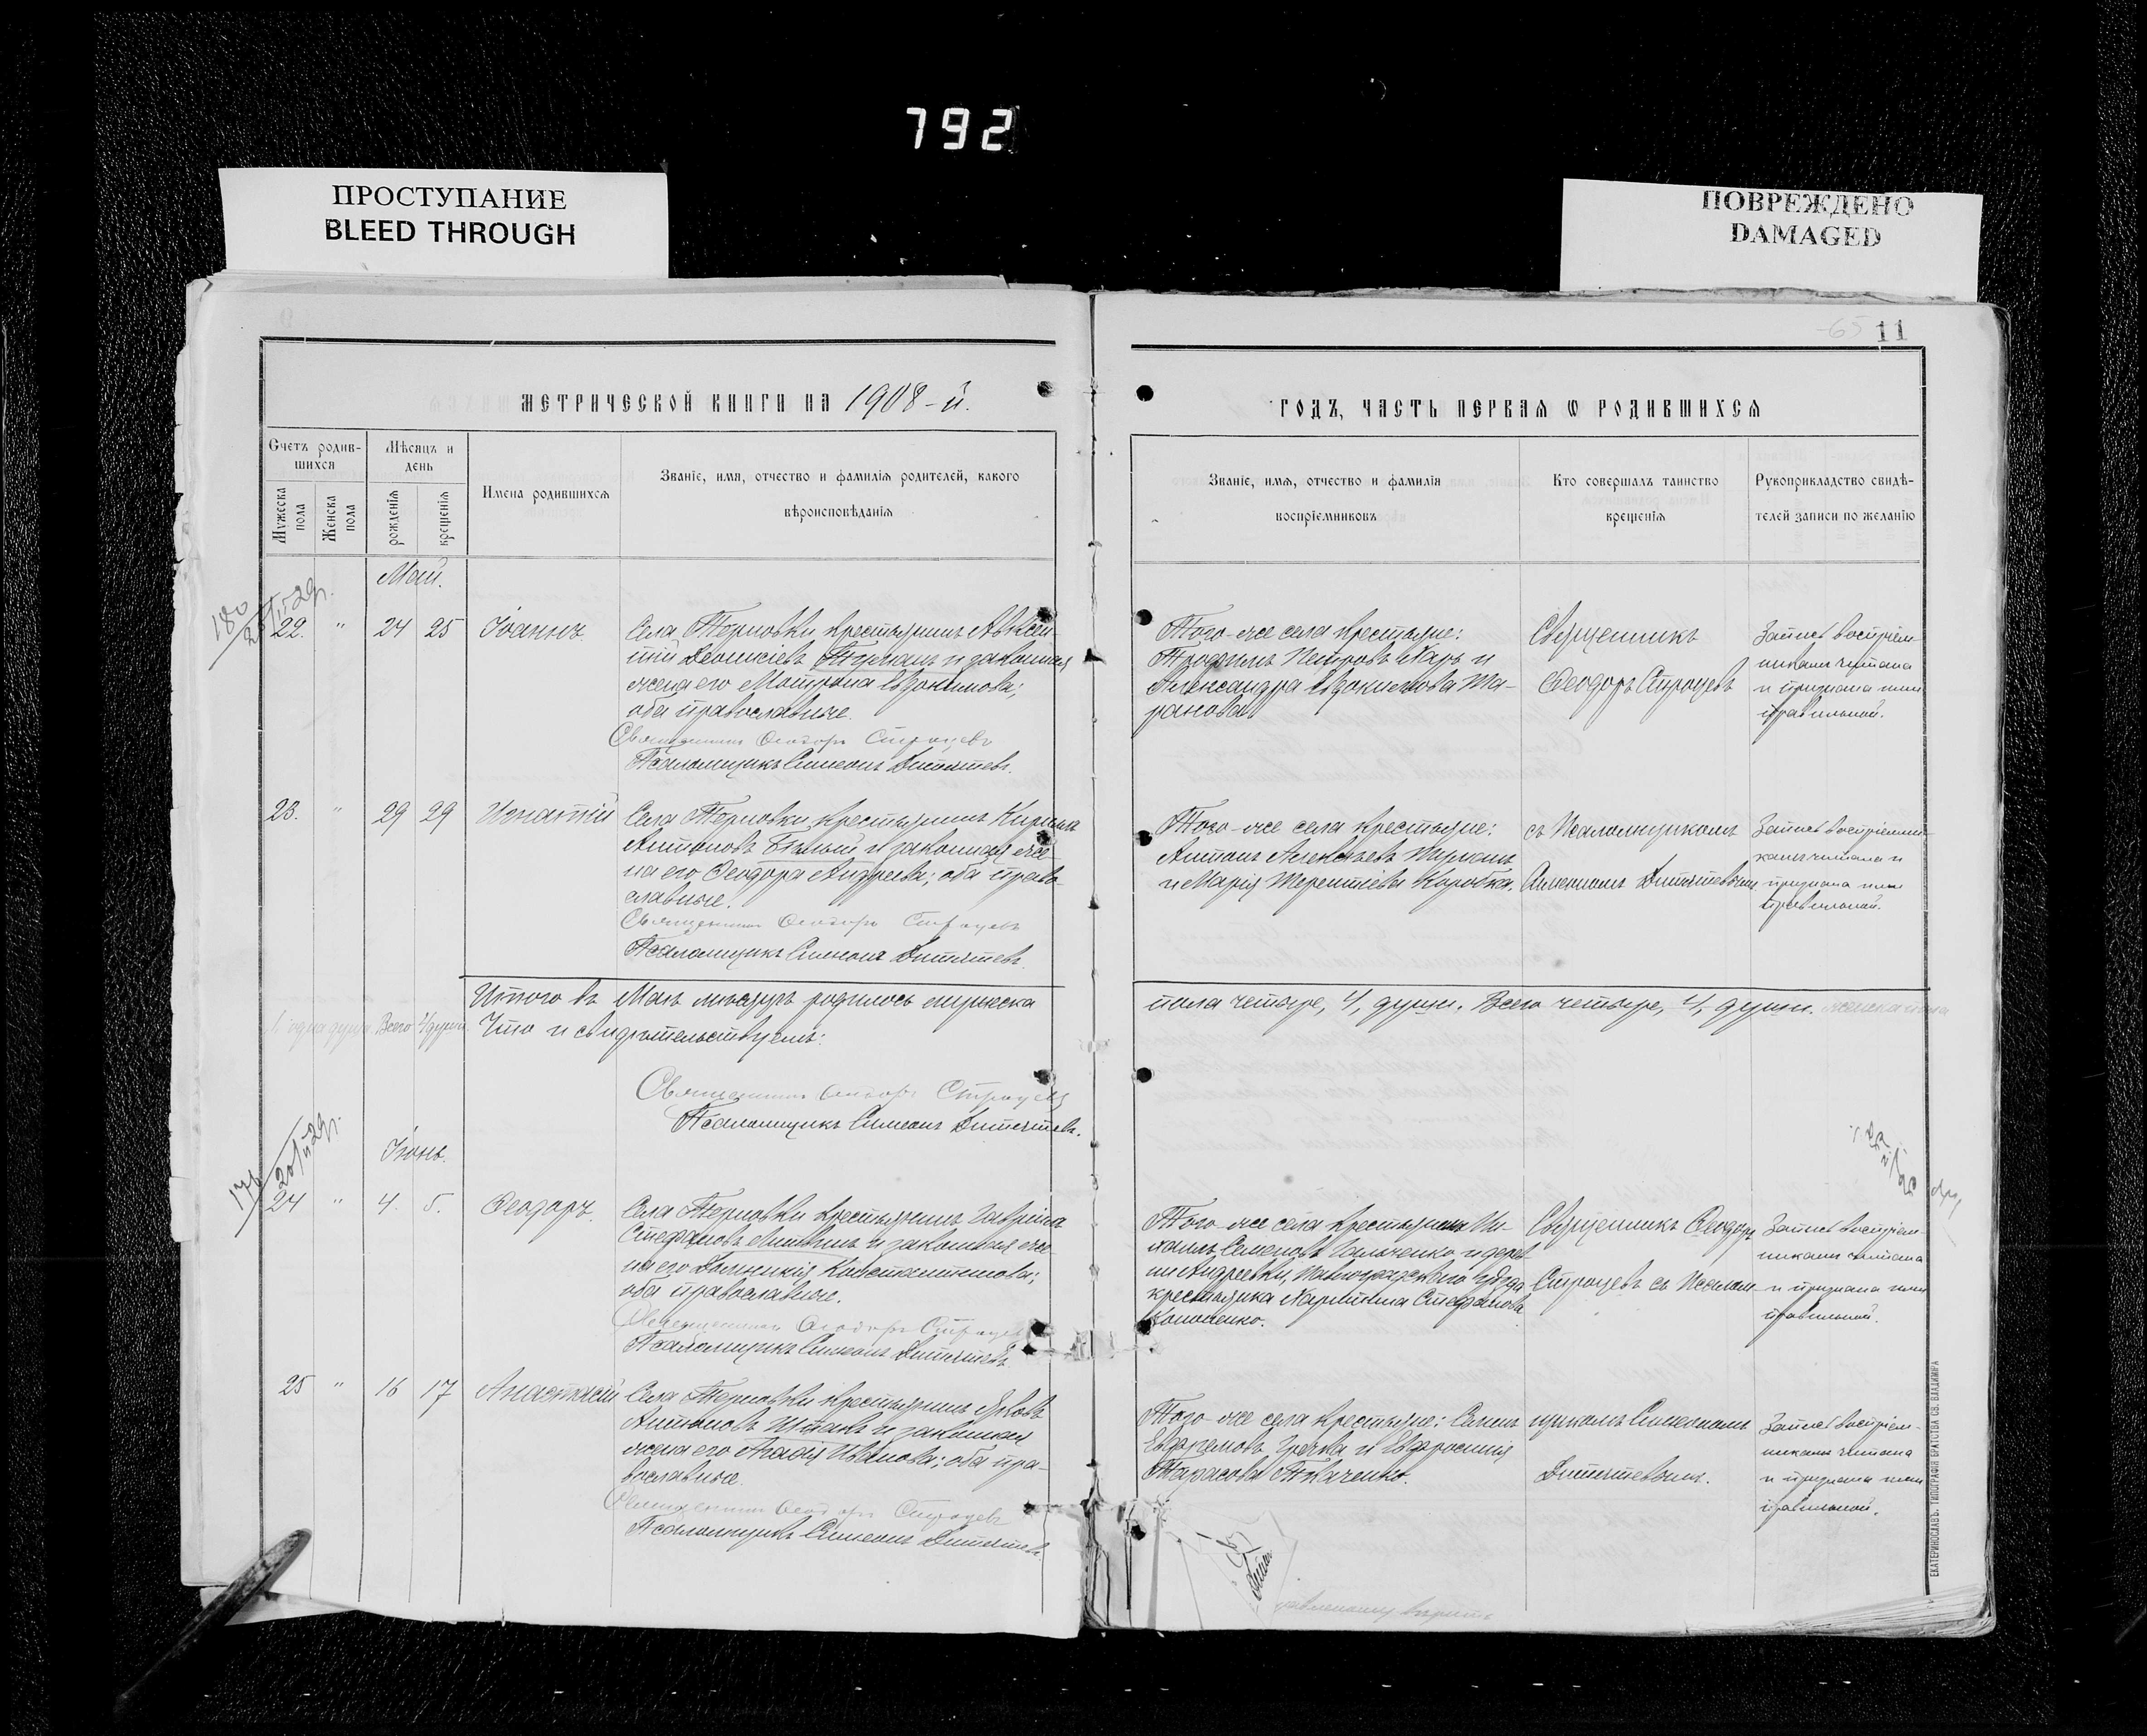 792
ПРОСТУПАНИЕ
BLEED THROUGH
ПОВРЕЖДЕНО
DAMAGED
65 11
МЕТРИЧЕСКОЙ КНИГИ НА 1908-й.
ГОДЪ, ЧАСТЬ ПЕРВАЯ Ѡ РОДИВШИХСЯ
Счетъ родив-
шихся
Мѣсяцъ и
день
Мужеска
пола
Женска
пола
рожденія
крещенія
Имена родившихся
Званіе, имя, отчество и фамилія родителей, какого
вѣроисповѣданія
Званіе, имя, отчество и фамилія
воспріемниковъ
Кто совершалъ таинство
крещенія
Рукоприкладство свидѣ-
телей записи по желанію
Май.
22. " 24 25 Іоаннъ.
Села Терновки крестьянинъ Авксен-
тій Діонисіевъ и законная
жена его Матрона Евдокимова;
оба православные.
Священникъ Ѳеодоръ Строцевъ
Псаломщикъ Симеонъ
Того-же села крестьяне:
Трофимъ Петровъ Харь и
Александра Евдокимова Та-
ранова
Священникъ
Ѳеодоръ Строцевъ
Запись воспріем-
никами читана
и признана ими
правильной.
23. " 29 29 Игнатій
Села Терновки крестьянинъ Кирилла
Антоновъ Бѣлый и законная же-
на его Ѳеодора Андреева; оба право-
славные.
Священникъ Ѳеодоръ Строцевъ
Псаломщикъ Симеонъ
Того-же села крестьяне:
Антонъ Алексѣевъ
и Марія Терентіева Коробка.
съ Псаломщикомъ
Симеономъ
Запись воспріемни-
ками читана и
признана ими
правильной.
Итого въ Маѣ мѣсяцѣ родилось мужеска
пола четыре, 4, души. Всего четыре, 4, души. женска пола
1 одна душа. Всего души Что и свидѣтельствуемъ:
Священникъ Ѳеодоръ Строцевъ
Псаломщикъ Симеонъ
Іюнь.
24 " 4. 5. Ѳеодоръ.
Села Терновки крестьянинъ Гавріилъ
Стефановъ и законная же-
на его Домникія Константинова;
оба православные.
Священникъ Ѳеодоръ Строцевъ
Псаломщикъ Симеонъ
Того-же села крестьянинъ Ми-
хаилъ Семеновъ и дерев-
ни Андреевки, Павлоградскаго уѣзда
крестьянка Харитина Стефанова
Кононенко.
Священникъ Ѳеодоръ
Строцевъ съ Псалом-
Запись воспріем-
никами читана
и признана ими
правильной.
25 " 16 17 Анастасій
Села Терновки крестьянинъ Яковъ
Антоновъ и законная
жена его Агафія Иванова; оба пра-
вославные.
Священникъ Ѳеодоръ Строцевъ
Псаломщикъ Симеонъ
Того-же села крестьяне: Семенъ
Ефремовъ и Евфросинія
Тарасова Ткаченко.
щикомъ Симеономъ
Запись воспріем-
никами читана
и признана ими
правильной.
ЕКАТЕРИНОСЛАВЪ. ТИПОГРАФІЯ БРАТСТВА СВ. ВЛАДИМІРА